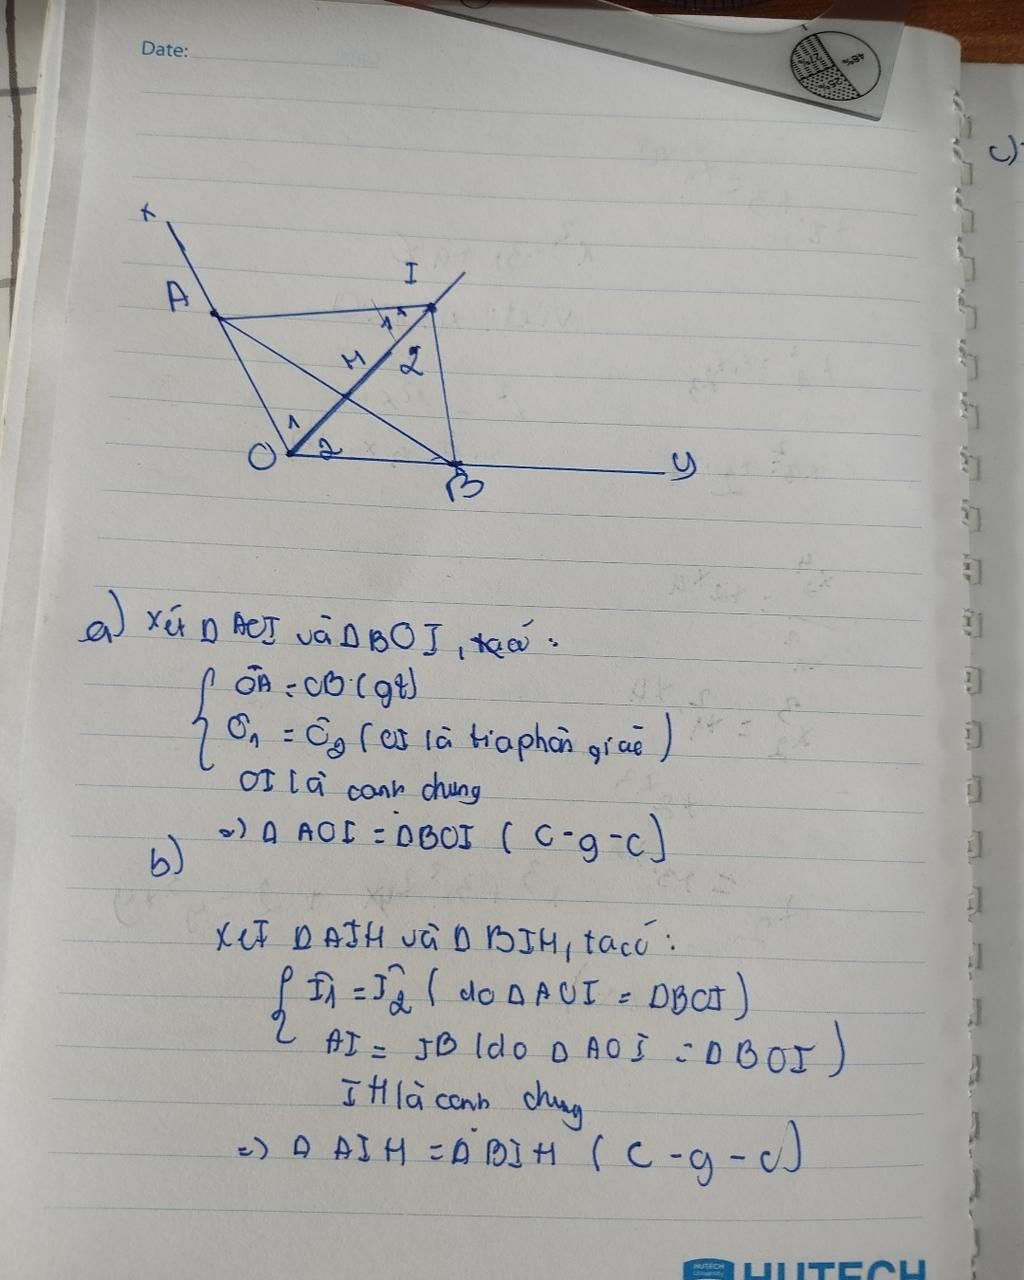 Date:
48%
c)
x
A
I
1
H
2
1
O
2
B
y
a) Xét Δ AOI và Δ BOI, ta có:
OA = OB (gt)
Ô1 = Ô2 (OI là tia phân giác)
OI là cạnh chung
=> Δ AOI = ΔBOI ( c-g-c)
b)
Xét ΔAIH và Δ BIH, ta có:
Î1 = Î2 ( do Δ AOI = ΔBOI)
AI = IB (do Δ AOI = Δ BOI)
IH là cạnh chung
=> Δ AIH = Δ BIH ( c-g-c)
HUTECH